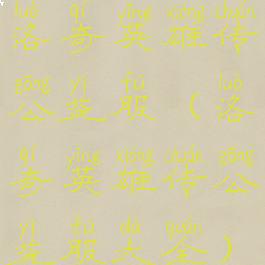 luò qí yīng xióng chuán
洛奇英雄传
gōng yì fú luò
公益服（洛
qí yīng xióng chuán gōng
奇英雄传公
yì fú dà quán
益服大全）